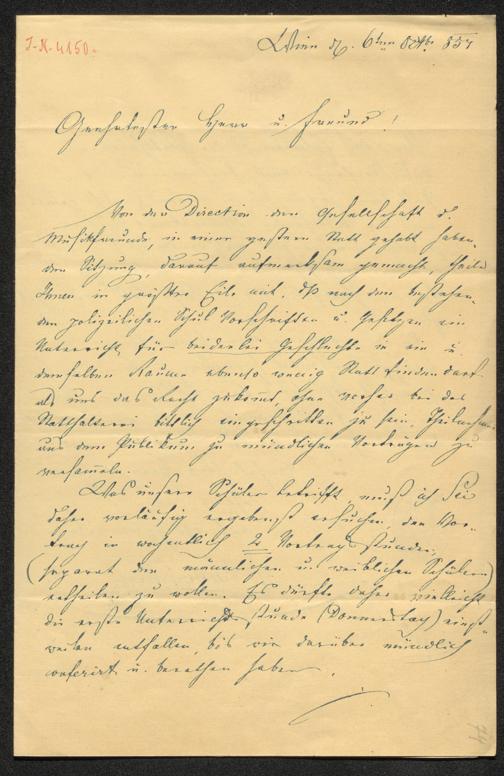 J-N. 4150.
Wien d. 6ten Octb. 857
Geehrtester Herr u. Freund!
Von der Direction der Gesellschaft d.
Musikfreunde, in einer gestern Statt gehabt haben-
den Sitzung, darauf aufmerksam gemacht, theile
Ihnen in größter Eile mit, dß nach den bestehen-
den polizeilichen Schul Vorschriften u. Gesetzen ein
Unterricht für beiderlei Geschlechts in ein u.
demselben Raume ebenso wenig Statt finden darf
als uns das Recht zukomt, ohne vorher bei der
Statthalterei bittlich eingeschritten zu sein, Theilnehmer
aus dem Publikum zu mündlichen Vorträgen zu
versam̄eln.
Was unsere Schüler betrifft, muß ich Sie
daher vorläufig ergebenst ersuchen, den Vor-
trag in wochentlich 2 Vortragsstunden,
(separat den männlichen u. weiblichen Schülern)
ertheilen zu wollen. Es dürfte daher vielleicht
die erste Unterrichtsstunde (Donnerstag) einst-
weilen entfallen, bis wir darüber mündlich
conferirt u. berathen haben.